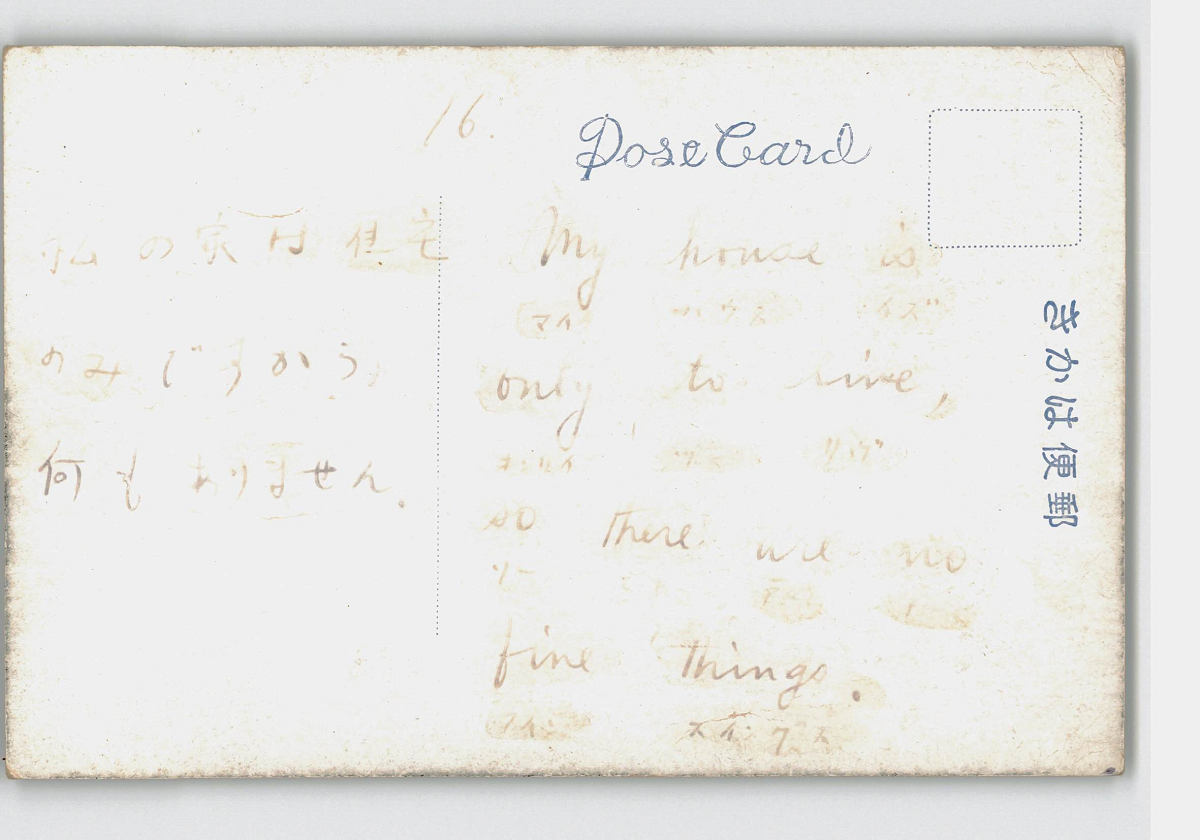 16.
Pose Card
きかは便郵
私の家は住宅
のみですから、
何もありません.
My house is
マイ ハウス イズ
only to live,
オンリイ ツー リヴ
so there are no
ソー
fine things.